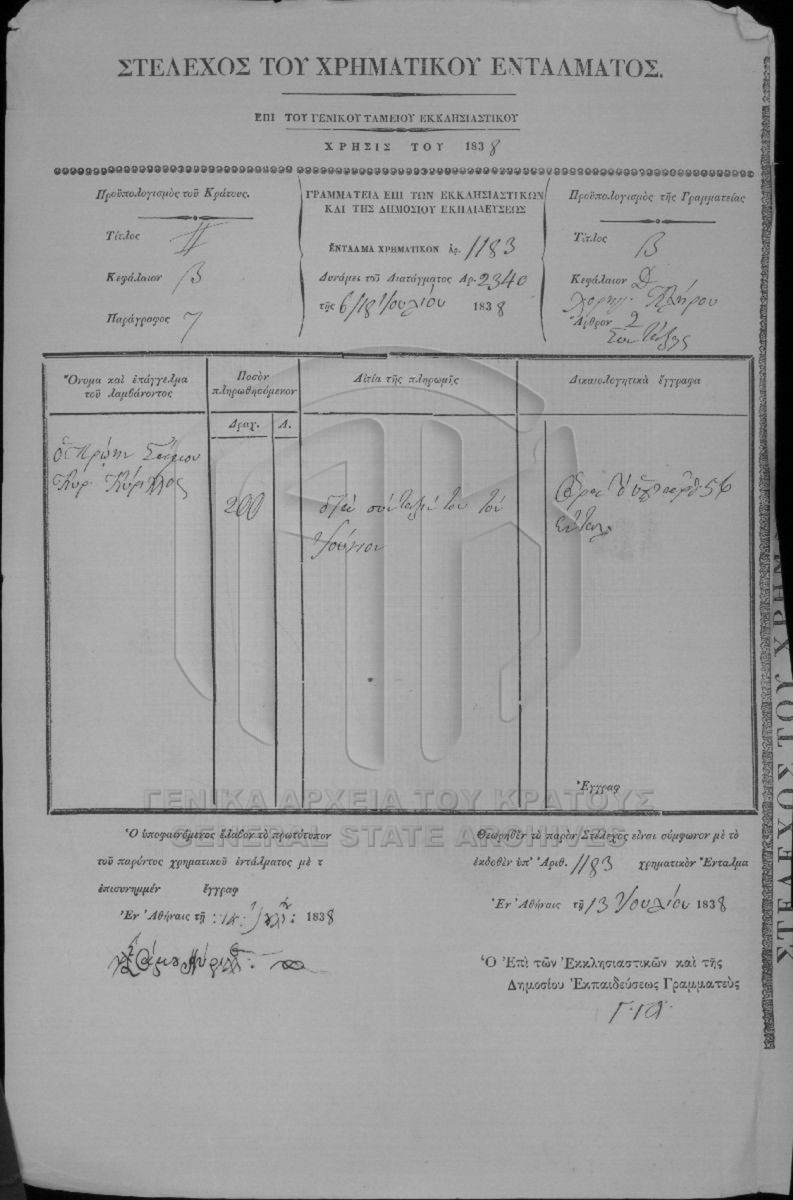 ΣΤΕΛΕΧΟΣ ΤΟΥ ΧΡΗΜΑΤΙΚΟΥ ΕΝΤΑΛΜΑΤΟΣ.
ΕΠΙ ΤΟΥ ΓΕΝΙΚΟΥ ΤΑΜΕΙΟΥ ΕΚΚΛΗΣΙΑΣΤΙΚΟΥ
ΧΡΗΣΙΣ ΤΟΥ 1838
Προϋπολογισμὸς τοῦ Κράτους.
Τίτλος
Κεφάλαιον Β
Παράγραφος 7
ΓΡΑΜΜΑΤΕΙΑ ΕΠΙ ΤΩΝ ΕΚΚΛΗΣΙΑΣΤΙΚΩΝ
ΚΑΙ ΤΗΣ ΔΗΜΟΣΙΟΥ ΕΚΠΑΙΔΕΥΣΕΩΣ
ΕΝΤΑΛΜΑ ΧΡΗΜΑΤΙΚΟΝ ἀρ. 1183
Δυνάμει τοῦ Διατάγματος Ἀρ. 2340
τῆς 6/18 Ἰουλίου 1838
Προϋπολογισμὸς τῆς Γραμματείας
Τίτλος Β
Κεφάλαιον Δ
Κλήρου
Ἄρθρον 2
Συντάξεις
Ὄνομα καὶ ἐπάγγελμα
τοῦ λαμβάνοντος
Ποσὸν
πληρωθησόμενον
Δραχ. Λ.
Αἰτία τῆς πληρωμῆς
Δικαιολογητικὰ ἔγγραφα
ὁ πρώην
Κύρ. Κύριλλος
200
διὰ σύνταξίν του τοῦ
Ἰουνίου
56
Ἐνταλ.
Ἐγγραφ
Ὁ ὑποφαινόμενος ἔλαβον τὸ πρωτότυπον
τοῦ παρόντος χρηματικοῦ ἐντάλματος μὲ τ
ἐπισυνημμέν ἔγγραφ
Ἐν Ἀθήναις τῇ 1838
Θεωρηθὲν τὸ παρὸν Στέλεχος εἶναι σύμφωνον μὲ τὸ
ἐκδοθὲν ὑπ' Ἀριθ. 1183 χρηματικὸν Ἔνταλμα
Ἐν Ἀθήναις τῇ 13 Ἰουλίου 1838
Ὁ Ἐπὶ τῶν Ἐκκλησιαστικῶν καὶ τῆς
Δημοσίου Ἐκπαιδεύσεως Γραμματεὺς
ΓΕΝΙΚΑ ΑΡΧΕΙΑ ΤΟΥ ΚΡΑΤΟΥΣ
GENERAL STATE ARCHIVES
ΣΤΕΛΕΧΟΣ ΤΟΥ ΧΡΗΜ